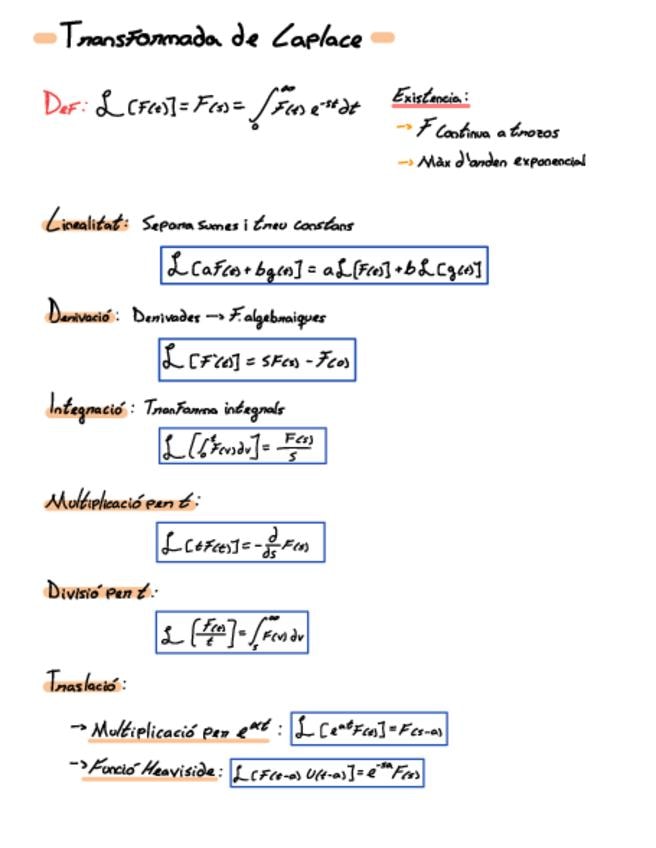 Transformada de Laplace
DEF: ℒ[F(t)] = F(s) = ∫₀^∞ F(t) e^-st dt
Existencia:
→ F Continua a trozos
→ Màx d'orden exponencial
Linealitat: Separa sumes i treu constans
ℒ[aF(t) + bg(t)] = aℒ[F(t)] + bℒ[g(t)]
Derivació: Derivades → F. algebraiques
ℒ[F'(t)] = SF(s) - F(0)
Integració: Tranforma integrals
ℒ[∫₀^t F(v)dv] = F(s)/s
Multiplicació per t:
ℒ[tF(t)] = -d/ds F(s)
Divisió per t:
ℒ[F(t)/t] = ∫ₛ^∞ F(v) dv
Traslació:
→ Multiplicació per e^αt: ℒ[e^at F(t)] = F(s-a)
→ Funció Heaviside: ℒ[F(t-a) U(t-a)] = e^-sa F(s)